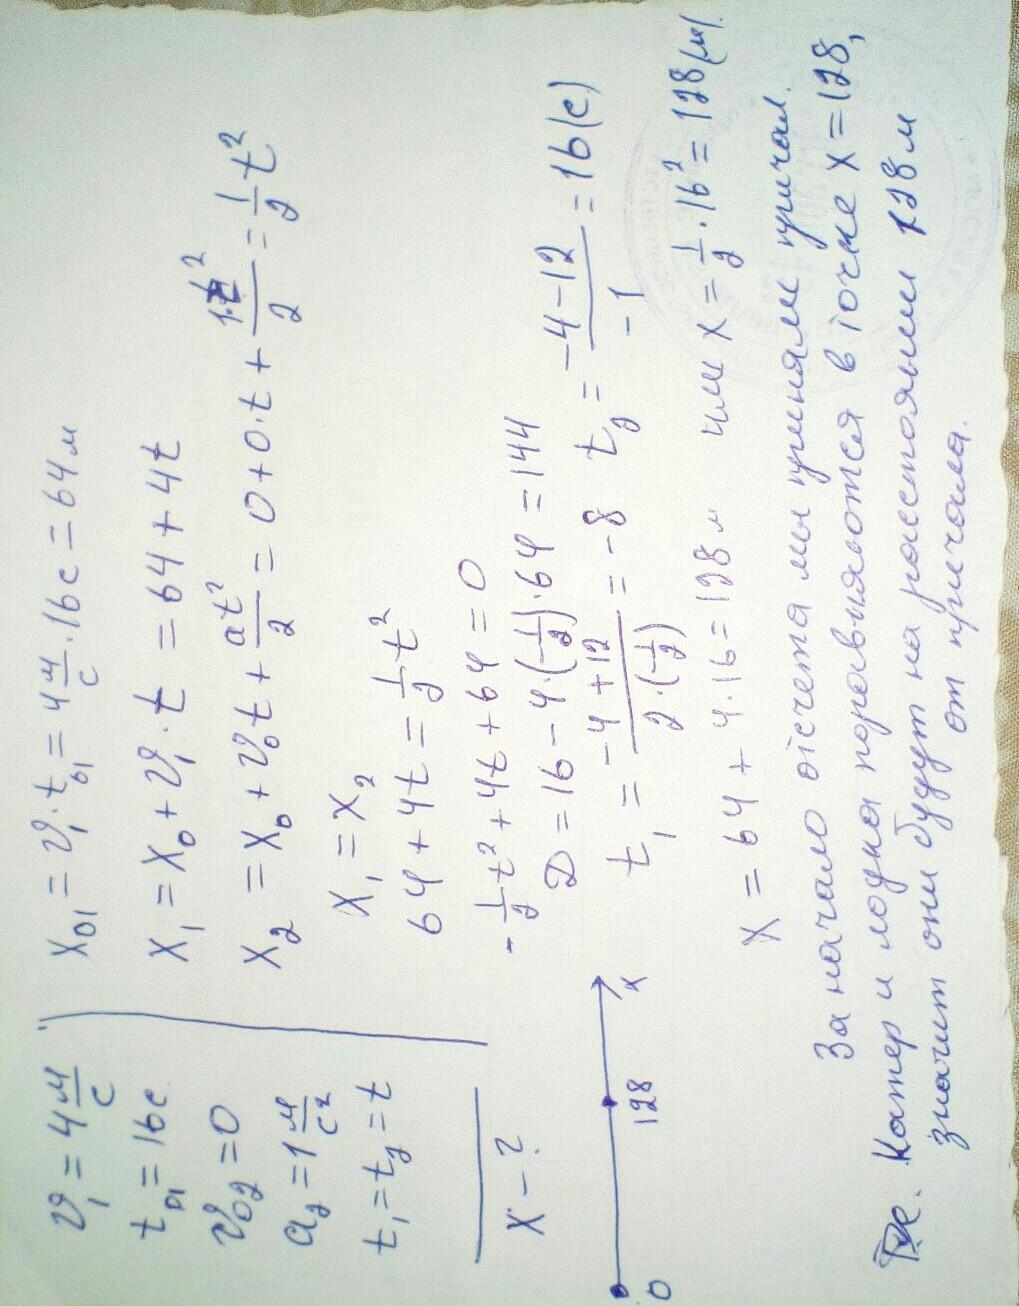 v₁ = 4 м/с
t₀₁ = 16 с
v₀₂ = 0
a₂ = 1 м/с²
t₁ = t₂ = t
x - ?
x₀₁ = v₁·t₀₁ = 4 м/с · 16 с = 64 м
x₁ = x₀ + v₁·t = 64 + 4t
x₂ = x₀ + v₀t + at²/2 = 0 + 0·t + 1·t²/2 = 1/2 t²
x₁ = x₂
64 + 4t = 1/2 t²
-1/2 t² + 4t + 64 = 0
D = 16 - 4·(-1/2)·64 = 144
t₁ = (-4 + 12)/(2·(-1/2)) = -8 t₂ = (-4 - 12)/(-1) = 16 (с)
0 128 x
x = 64 + 4·16 = 128 м или x = 1/2 · 16² = 128 (м).
За начало отсчета мы приняли причал.
Катер и лодка поравняются в точке x = 128,
значит они будут на расстоянии 128 м
от причала.